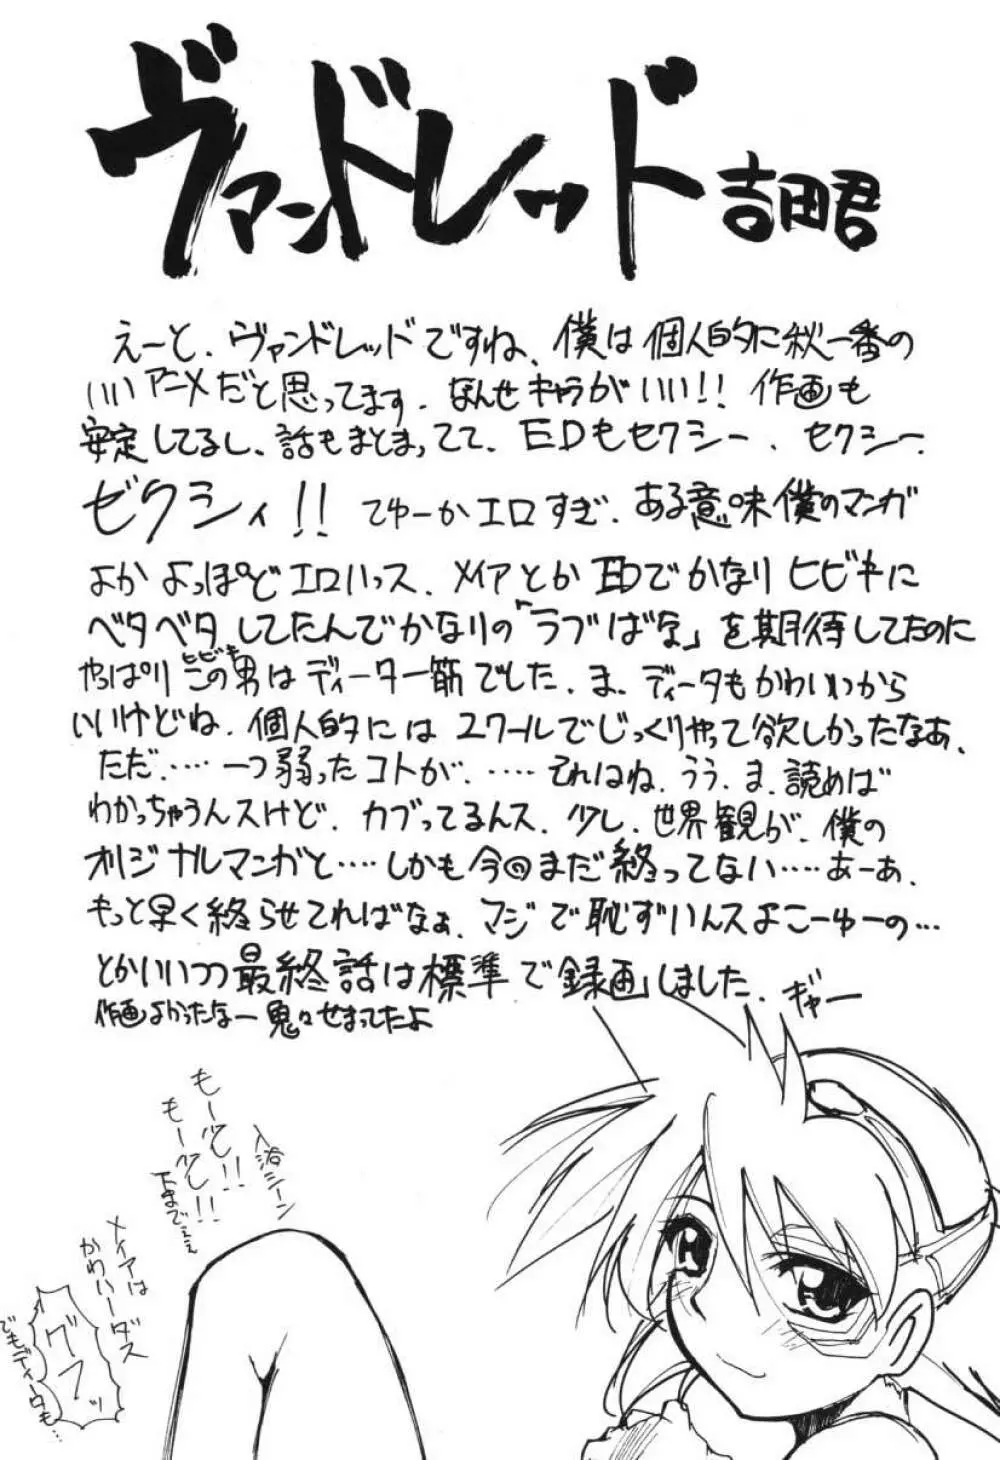 ヴァンドレッド 吉田君
えーと、ヴァンドレッドですね、僕は個人的に秋一番の
いいアニメだと思ってます。なんせキャラがいい!! 作画も
安定してるし、話もまとまってて、EDもセクシー、セクシー、
ゼクシィ!! てゆーかエロすぎ、ある意味僕のマンガ
よか よっぽどエロいっス、メイアとかEDでかなりヒビキに
ベタベタしてたんでかなりの「ラブばな」を期待してたのに
やっぱり この男はディータ一筋でした。ま、ディータもかわいいから
ヒビキ
いいけどね、個人的には 2クールでじっくりやって欲しかったなあ、
ただ…… 一つ弱ったコトが、…… それはね、うう、ま、読めば
わかっちゃうんスけど、カブってるんス、少し、世界観が、僕の
オリジナルマンガと…… しかも今回まだ終ってない…… あーあ、
もっと早く終らせてればなぁ、マジで恥ずいんスよこーゆーの…
とかいいつつ最終話は標準で録画しました、ギャー
作画よかったなー 鬼々せまってたよ
入浴シーン
もーレ!!
もーレ!!
下までぇぇ
メイアは
かわいーダス
グフッ
でもディータも…